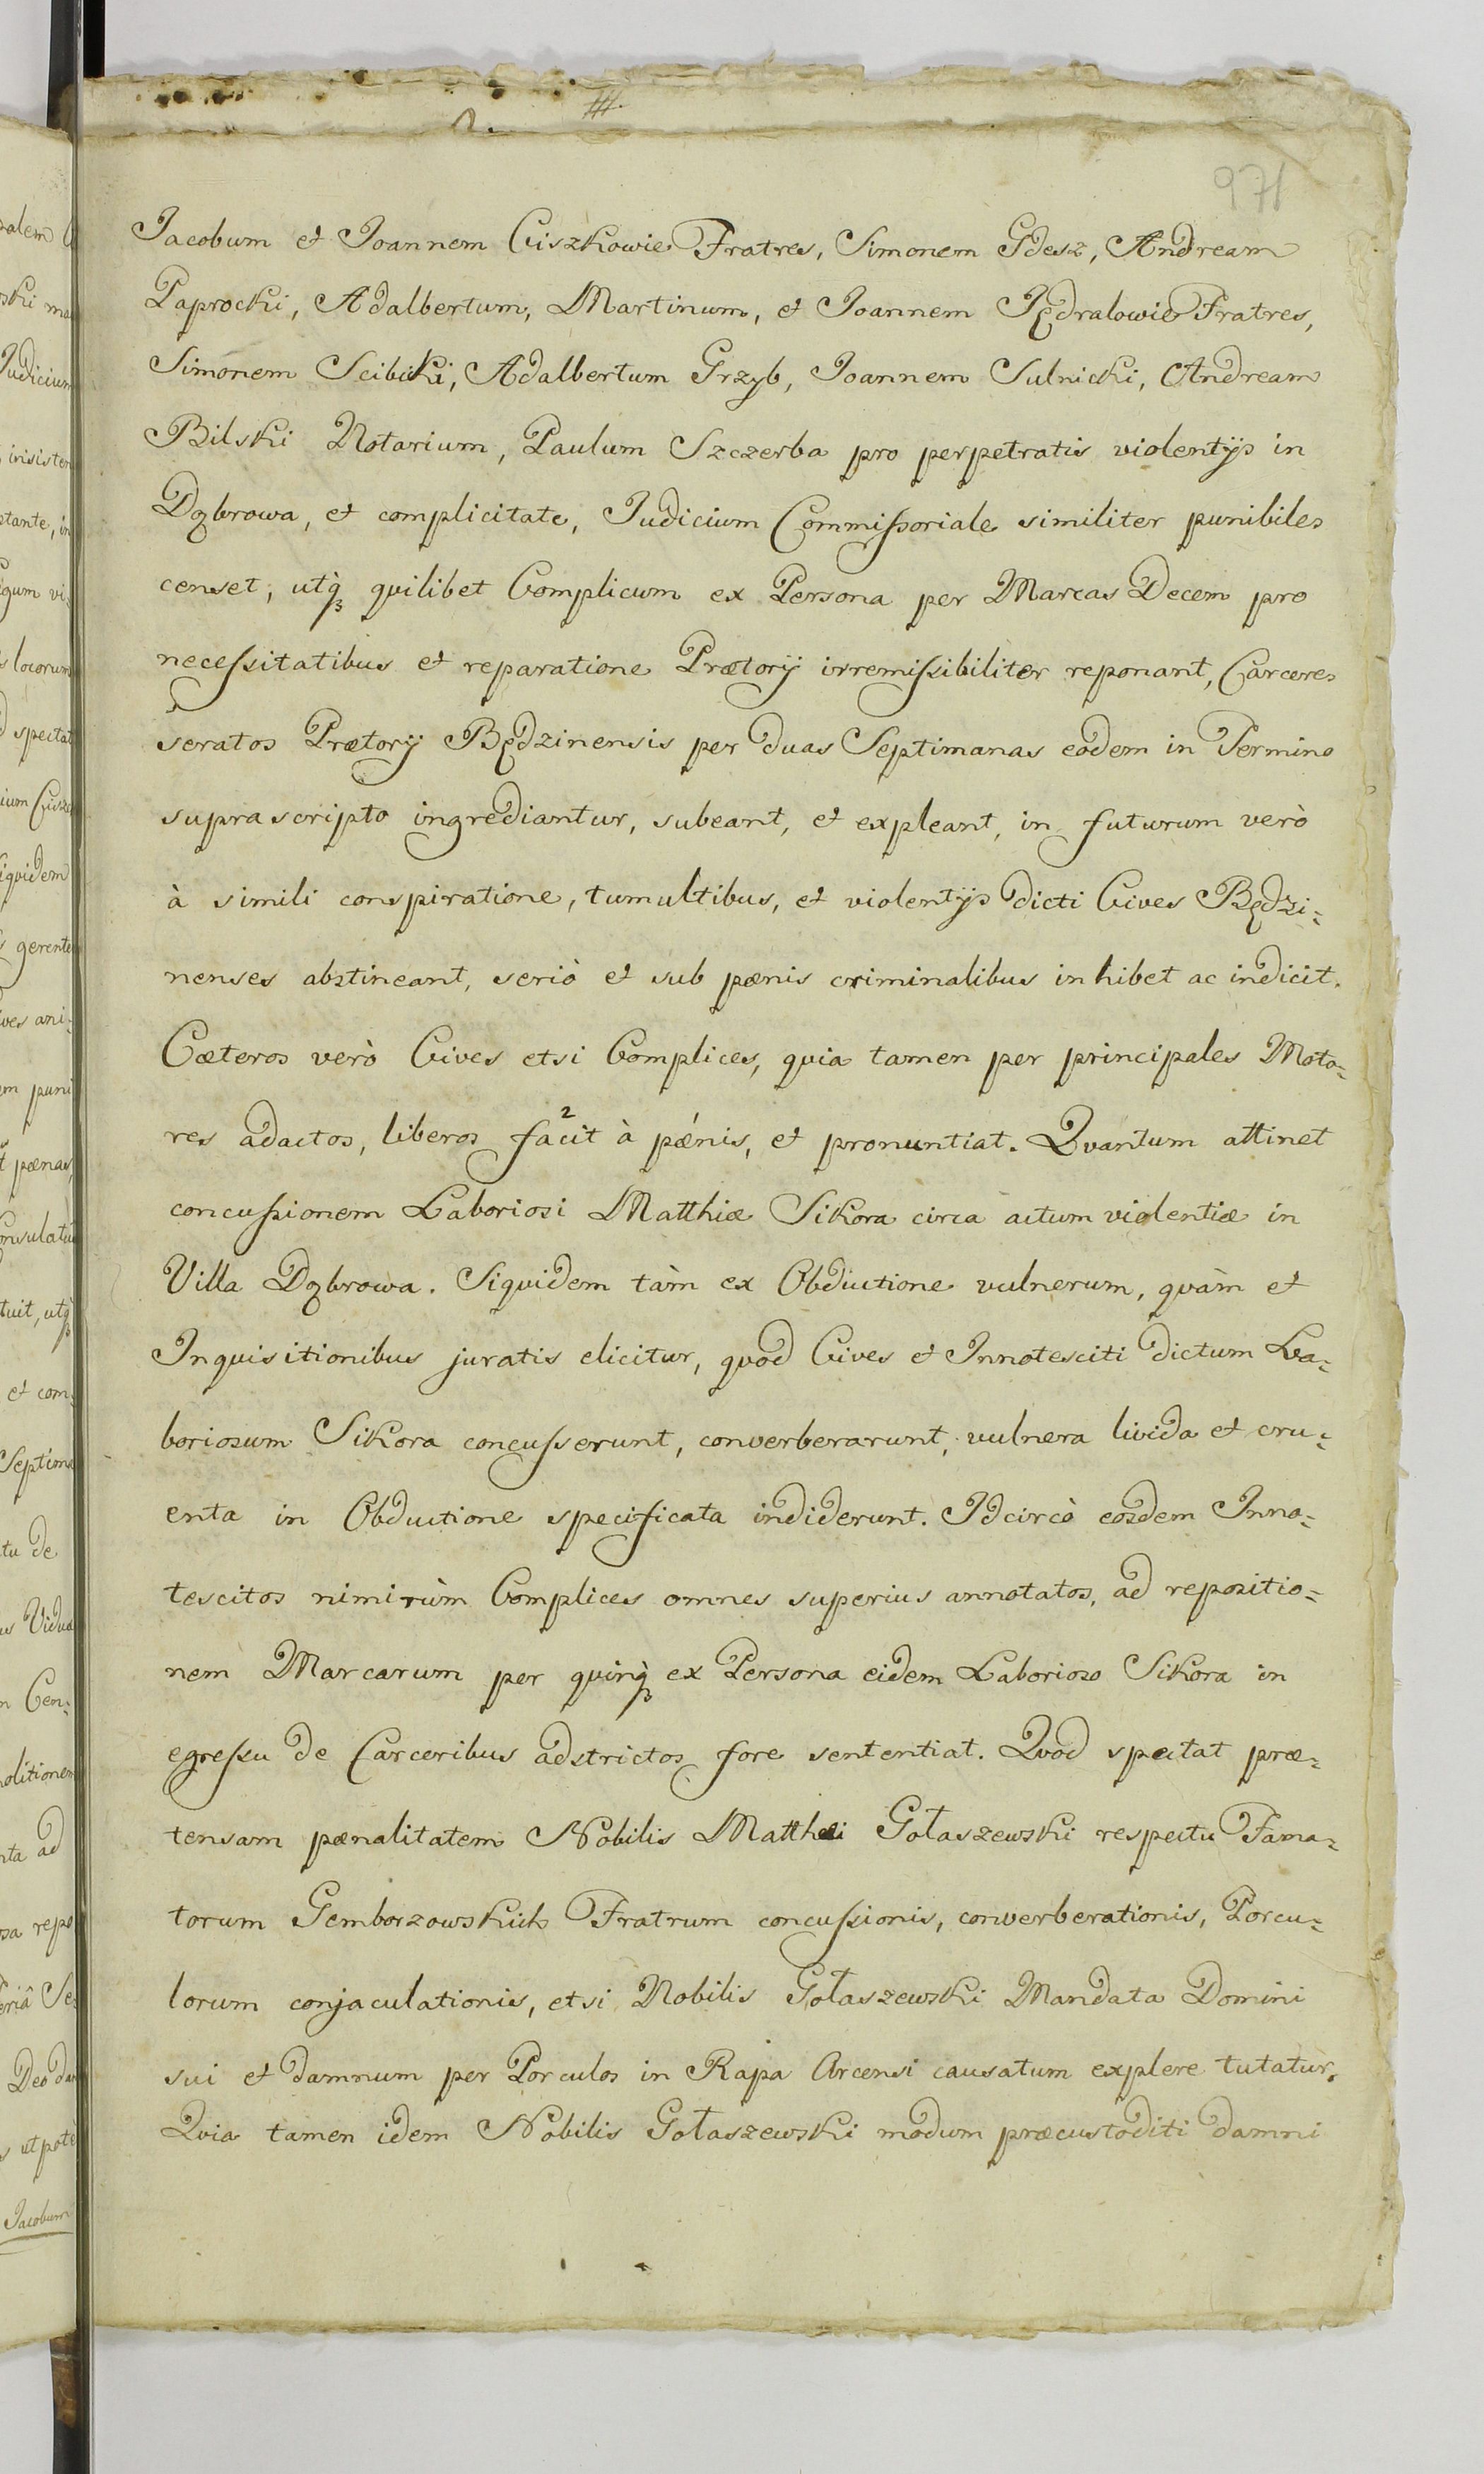 971
Jacobum et Joannem Ciszkowie Fratres, Simonem Gdesz, Andream
Paprocki, Adalbertum, Martinum, et Joannem Jędralowie Fratres,
Simonem Scibicki, Adalbertum Grzyb, Joannem Sulnicki, Andream
Bilski Notarium, Paulum Szczerba pro perpetratis violentijs in
Dąbrowa, et complicitate, Judicium Commissoriale similiter punibiles
censet, utq̀ quilibet Complicum ex Persona per Marcas Decem pro
necessitatibus et reparatione Prætorij irremissibiliter reponant, Carceres
seratos Prætorij Będzinensis per duas Septimanas eodem in Termino
suprascripto ingrediantur, subeant, et expleant, in futurum verò
à simili conspiratione, tumultibus, et violentijs dicti Cives Będzi=
nenses abstineant, seriò et sub pænis criminalibus inhibet ac indicit.
Cæteros verò Cives etsi Complices, quia tamen per principales Moto=
res adactos, liberos facit à pænis, et pronuntiat. Quantum attinet
concussionem Laboriosi Matthiæ Sikora circa actum violentiæ in
Villa Dąbrowa. Siquidem tàm ex Obductione vulnerum, quàm et
Inquisitionibus juratis elicitur, quod Cives et Innotesciti dictum La=
boriosum Sikora concusserunt, converberarunt, vulnera livida et cru=
enta in Obductione specificata indiderunt. Idcircò eosdem Inno=
tescitos nimirùm Complices omnes superius annotatos, ad repositio=
nem Marcarum per quinq̀ ex Persona eidem Laborioso Sikora in
egressu de Carceribus adstrictos fore sententiat. Quod spectat præ=
tensam pænalitatem Nobilis Matthæi Gołaszewski respectu Fama=
torum Gemborzowskich Fratrum concussionis, converberationis, Porcu=
lorum conjaculationis, etsi Nobilis Gołaszewski Mandata Domini
sui et damnum per Porculos in Rapa Arcensi causatum explere tutatur.
Quia tamen idem Nobilis Gołaszewski modum præcustoditi damni